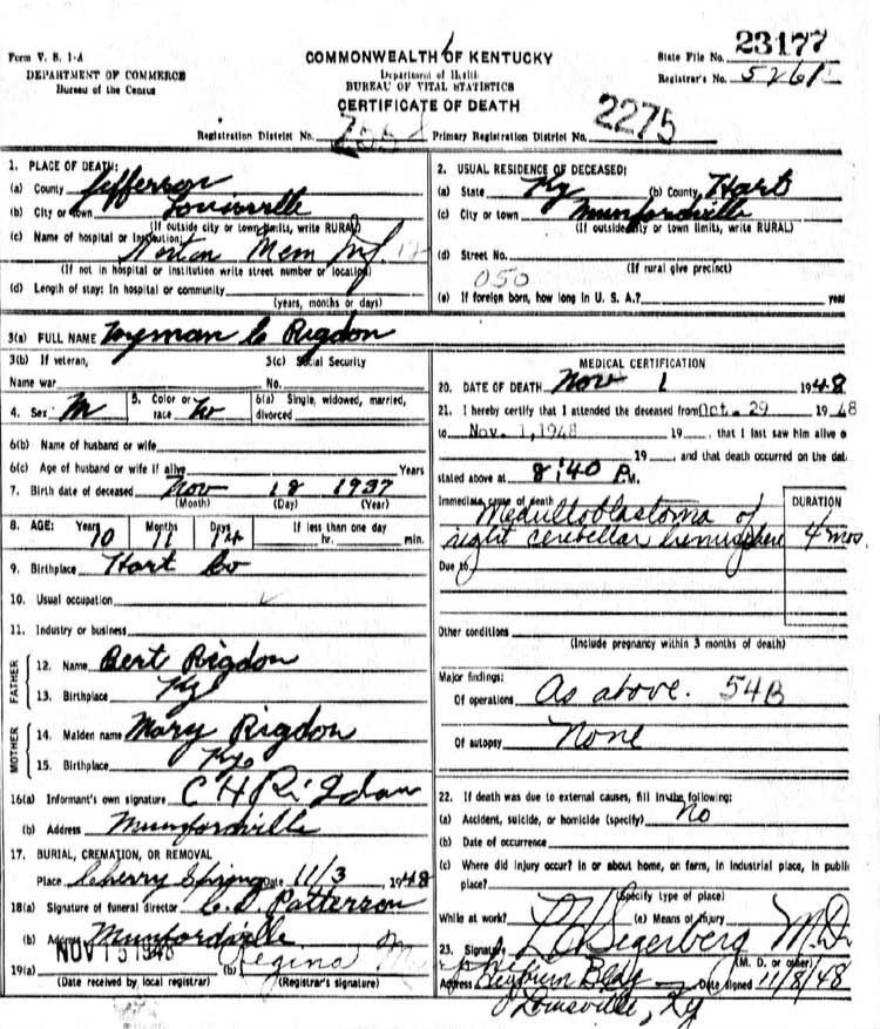 Form V. S. 1-A
DEPARTMENT OF COMMERCE
Bureau of the Census
COMMONWEALTH OF KENTUCKY
Department of Health
BUREAU OF VITAL STATISTICS
CERTIFICATE OF DEATH
State File No. 23177
Registrar's No. 5261
Registration District No. Primary Registration District No. 2275
1. PLACE OF DEATH:
(a) County Jefferson
(b) City or town Louisville
(If outside city or town limits, write RURAL)
(c) Name of hospital or Institution:
Norton Mem Inf.
(If not in hospital or institution write street number or location)
(d) Length of stay: In hospital or community
(years, months or days)
2. USUAL RESIDENCE OF DECEASED:
(a) State Ky (b) County Hart
(c) City or town Munfordville
(If outside city or town limits, write RURAL)
(d) Street No.
050 (If rural give precinct)
(e) If foreign born, how long in U. S. A.? year
3(a) FULL NAME Wyman C Rigdon
3(b) If veteran, 3(c) Social Security
Name war No.
4. Sex M 5. Color or race W 6(a) Single, widowed, married, divorced
6(b) Name of husband or wife
6(c) Age of husband or wife if alive Years
7. Birth date of deceased Nov 18 1937
(Month) (Day) (Year)
8. AGE: Years Months Days If less than one day
10 11 14 hr. min.
9. Birthplace Hart Co
10. Usual occupation
11. Industry or business
FATHER
12. Name Bert Rigdon
13. Birthplace Ky
MOTHER
14. Maiden name Mary Rigdon
15. Birthplace Ky
16(a) Informant's own signature C H Rigdon
(b) Address Munfordville
17. BURIAL, CREMATION, OR REMOVAL
Place Cherry Spring Date 11/3 1948
18(a) Signature of funeral director C. D. Patterson
(b) Address Munfordville
19(a) NOV 15 1948 (b) Regina
(Date received by local registrar) (Registrar's signature)
MEDICAL CERTIFICATION
20. DATE OF DEATH Nov 1 1948
21. I hereby certify that I attended the deceased from Oct. 29 1948
to Nov. 1, 1948 19 , that I last saw him alive o
19 , and that death occurred on the dat
stated above at 8:40 P.M.
Immediate cause of death DURATION
Medulloblastoma of
right cerebellar hemisphere 4 mos.
Due to
Other conditions
(Include pregnancy within 3 months of death)
Major findings:
Of operations As above. 54B
Of autopsy None
22. If death was due to external causes, fill in the following:
(a) Accident, suicide, or homicide (specify) No
(b) Date of occurrence
(c) Where did injury occur? In or about home, on farm, in industrial place, in publi
place?
(Specify type of place)
While at work? (e) Means of Injury
23. Signature Segerberg M.D.
(M. D. or other)
Address Heyburn Bldg Date signed 11/8/48
Louisville, Ky